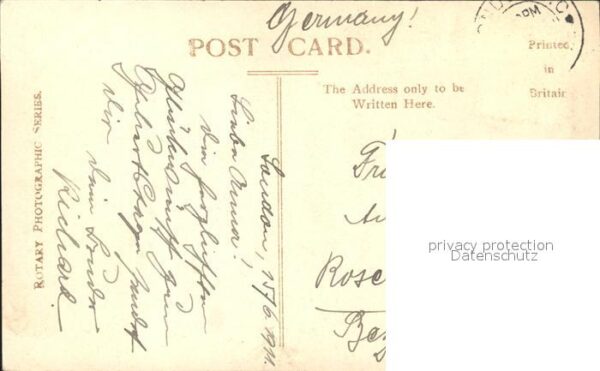 Germany!
POST CARD.
Printed
in
Britain
The Address only to be
Written Here.
ROTARY PHOTOGRAPHIC SERIES.
London, 15/6 1911.
Liebe Anna!
Die herzlichsten
Glückwünsche zum
Geburtstage sendet
Dir
dein Bruder
Richard.
Rose
privacy protection
Datenschutz